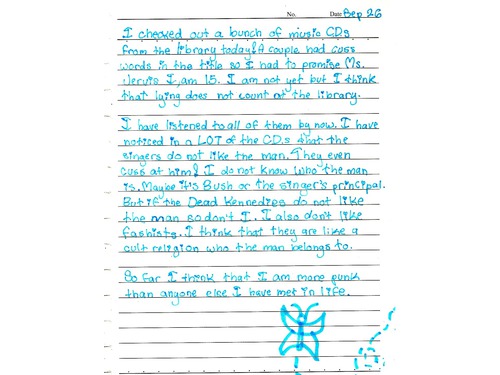 No. Date Sep 26
I checked out a bunch of music CDs
from the library today! A couple had cuss
words in the title so I had to promise Ms.
Jervis I, am 15. I am not yet but I think
that lying does not count at the library.
I have listened to all of them by now. I have
noticed in a LOT of the CDs that the
singers do not like the man. They even
cuss at him! I do not know who the man
is. Maybe it's Bush or the singer's principal.
But if the Dead Kennedies do not like
the man so don't I. I also don't like
fashists. I think that they are like a
cult religion who the man belongs to.
So far I think that I am more punk
than anyone else I have met in life.